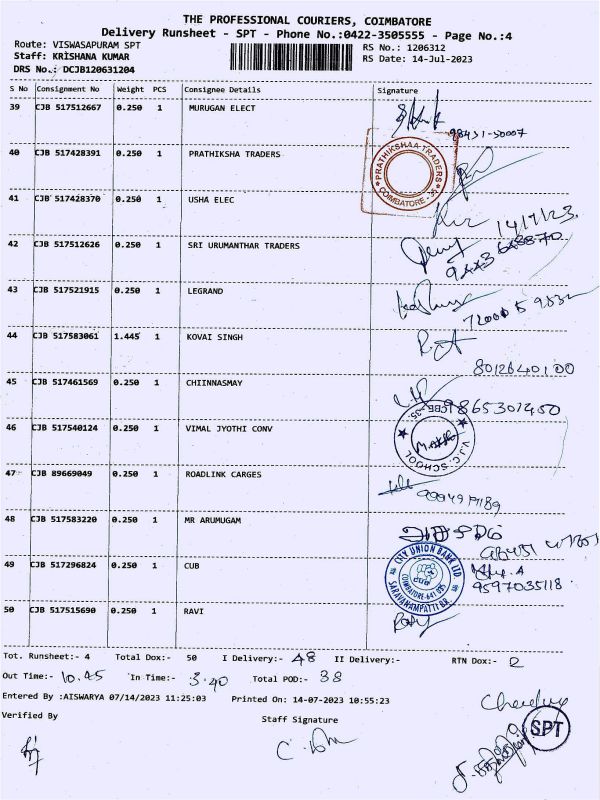 THE PROFESSIONAL COURIERS, COIMBATORE
Delivery Runsheet - SPT - Phone No.:0422-3505555 - Page No.:4
Route: VISWASAPURAM SPT RS No.: 1206312
Staff: KRISHANA KUMAR RS Date: 14-Jul-2023
DRS No.: DCJB120631204
S No Consignment No Weight PCS Consignee Details Signature
39 CJB 517512667 0.250 1 MURUGAN ELECT
98431-50007
40 CJB 517428391 0.250 1 PRATHIKSHA TRADERS
PRATHIKSHAA TRADERS COIMBATORE - 35
41 CJB 517428370 0.250 1 USHA ELEC
14/7/23
42 CJB 517512626 0.250 1 SRI URUMANTHAR TRADERS
43 CJB 517521915 0.250 1 LEGRAND
44 CJB 517583061 1.445 1 KOVAI SINGH
8012640100
45 CJB 517461569 0.250 1 CHIINNASMAY
9865301450
46 CJB 517540124 0.250 1 VIMAL JYOTHI CONV
V.J.C. SCHOOL CBE-35
47 CJB 89669049 0.250 1 ROADLINK CARGES
48 CJB 517583220 0.250 1 MR ARUMUGAM
49 CJB 517296824 0.250 1 CUB
CITY UNION BANK LTD. CUB COIMBATORE-641 035 SARAVANAMPATTI BR.
9597035118
50 CJB 517515690 0.250 1 RAVI
Tot. Runsheet:- 4 Total Dox:- 50 I Delivery:- 48 II Delivery:- RTN Dox:- 2
Out Time:- 10.45 In Time:- 3.40 Total POD:- 38
Entered By :AISWARYA 07/14/2023 11:25:03 Printed On: 14-07-2023 10:55:23
Verified By Staff Signature
SPT